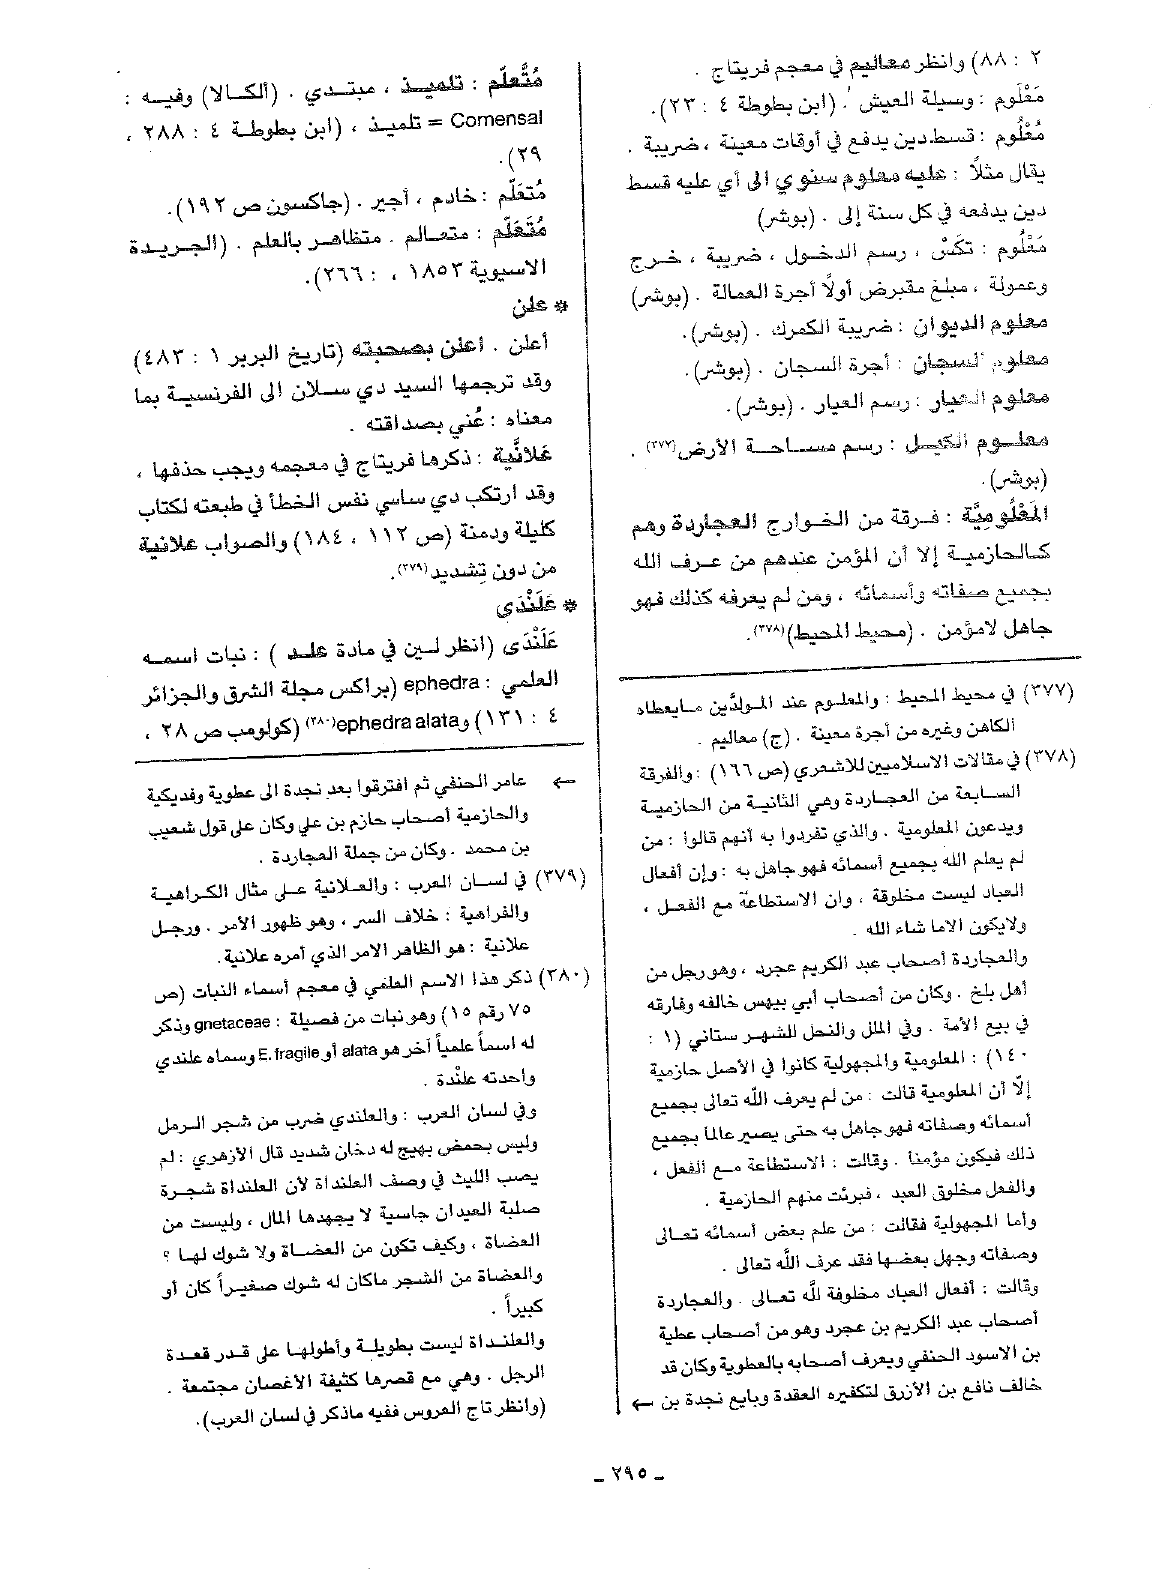 ٢ : ٨٨) وانظر معاليم في معجم فريتاج .
مَعْلُوم : وسيلة العيش . (ابن بطوطة ٤ : ٢٣).
مُعْلُوم : قسط دين يدفع في أوقات معينة ، ضريبة .
يقال مثلاً : عليه معلوم سنوي الى أي عليه قسط
دين يدفعه في كل سنة إلى . (بوشر)
مَعْلُوم : تكَسْ ، رسم الدخول ، ضريبة ، خرج
وعمولة ، مبلغ مقبرض أولاً أجرة العمالة . (بوشر)
معلوم الديوان : ضريبة الكمرك . (بوشر).
معلوم السجان : أجرة السجان . (بوشر).
معلوم العيار : رسم العيار . (بوشر).
معلوم الكيل : رسم مساحة الأرض(٣٧٧) .
(بوشر).
المَعْلُومِيَّة : فرقة من الخوارج العجاردة وهم
كالحازمية إلا أن المؤمن عندهم من عرف الله
بجميع صفاته وأسمائه ، ومن لم يعرفه كذلك فهو
جاهل لامؤمن . (محيط المحيط)(٣٧٨).
(٣٧٧) في محيط المحيط : والمعلوم عند المولدَّين مايعطاه
الكاهن وغيره من أجرة معينة . (ج) معاليم .
(٣٧٨) في مقالات الاسلاميين للاشعري (ص ١٦٦) : والفرقة
السابعة من العجاردة وهي الثانية من الحازمية
ويدعون المعلومية . والذي تفردوا به أنهم قالوا : من
لم يعلم الله بجميع أسمائه فهو جاهل به : وإن أفعال
العباد ليست مخلوقة ، وان الاستطاعة مع الفعل ،
ولايكون الاما شاء الله .
والعجاردة أصحاب عبد الكريم عجرد ، وهو رجل من
أهل بلخ . وكان من أصحاب أبي بيهس خالفه وفارقه
في بيع الأمة . وفي الملل والنحل للشهر ستاني (١ :
١٤٠) : المعلومية والمجهولية كانوا في الأصل حازمية
إلّا أن المعلومية قالت : من لم يعرف الله تعالى بجميع
أسمائه وصفاته فهو جاهل به حتى يصير عالما بجميع
ذلك فيكون مؤمنا . وقالت : الاستطاعة مع الفعل ،
والفعل مخلوق العبد ، فبرئت منهم الحازمية .
وأما المجهولية فقالت : من علم بعض أسمائه تعالى
وصفاته وجهل بعضها فقد عرف الله تعالى .
وقالت : أفعال العباد مخلوفة لله تعالى . والعجاردة
أصحاب عبد الكريم بن عجرد وهو من أصحاب عطية
بن الاسود الحنفي ويعرف أصحابه بالعطوية وكان قد
خالف نافع بن الأزرق لتكفيره العقدة وبايع نجدة بن ←
مُتَّعلِّم : تلميذ ، مبتدي . (الكالا) وفيه :
Comensal = تلميذ ، (ابن بطوطة ٤ : ٢٨٨ ،
٣٩).
مُتعَلِّم : خادم ، أجير . (جاكسون ص ١٩٢).
مُتَعَلِّم : متعالم . متظاهر بالعلم . (الجريدة
الاسيوية ١٨٥٣ ، : ٢٦٦).
* علن
أعلن . اعلن بصحبته (تاريخ البربر ١ : ٤٨٣)
وقد ترجمها السيد دي سلان الى الفرنسية بما
معناه : عُني بصداقته .
عَلانَّية : ذكرها فريتاج في معجمه ويجب حذفها ،
وقد ارتكب دي ساسي نفس الخطأ في طبعته لكتاب
كليلة ودمنة (ص ١١٢ ، ١٨٤) والصواب علانية
من دون تشديد(٣٧٩).
* عَلَنْدَى
عَلَنْدَى (انظر لين في مادة علد ) : نبات اسمه
العلمي : ephedra (براكس مجلة الشرق والجزائر
٤ : ١٣١) وephedra alata(٣٨٠) (كولومب ص ٢٨ ،
← عامر الحنفي ثم افترقوا بعد نجدة الى عطوية وفديكية
والحازمية أصحاب حازم بن علي وكان على قول شعيب
بن محمد . وكان من جملة العجاردة .
(٣٧٩) في لسان العرب : والعلانية على مثال الكراهية
والفراهية : خلاف السر ، وهو ظهور الأمر . ورجل
علانية : هو الظاهر الامر الذي أمره علانية.
(٣٨٠) ذكر هذا الاسم العلمي في معجم أسماء النبات (ص
٧٥ رقم ١٥) وهو نبات من فصيلة : gnetaceae وذكر
له اسماً علمياً آخر هو alata أو E. fragile وسماه علندي
واحدته علنْدة .
وفي لسان العرب : والعلندي ضرب من شجر الرمل
وليس بحمض يهيج له دخان شديد قال الأزهري : لم
يصب الليث في وصف العلنداة لأن العلنداة شجرة
صلبة العيدان جاسية لا يجهدها المال ، وليست من
العضاة ، وكيف تكون من العضاة ولا شوك لها ؟
والعضاة من الشجر ماكان له شوك صغيراً كان أو
كبيراً .
والعلنداة ليست بطويلة وأطولها على قدر قعدة
الرجل . وهي مع قصرها كثيفة الأغصان مجتمعة .
(وانظر تاج العروس ففيه ماذكر في لسان العرب).
- ٢٩٥ -